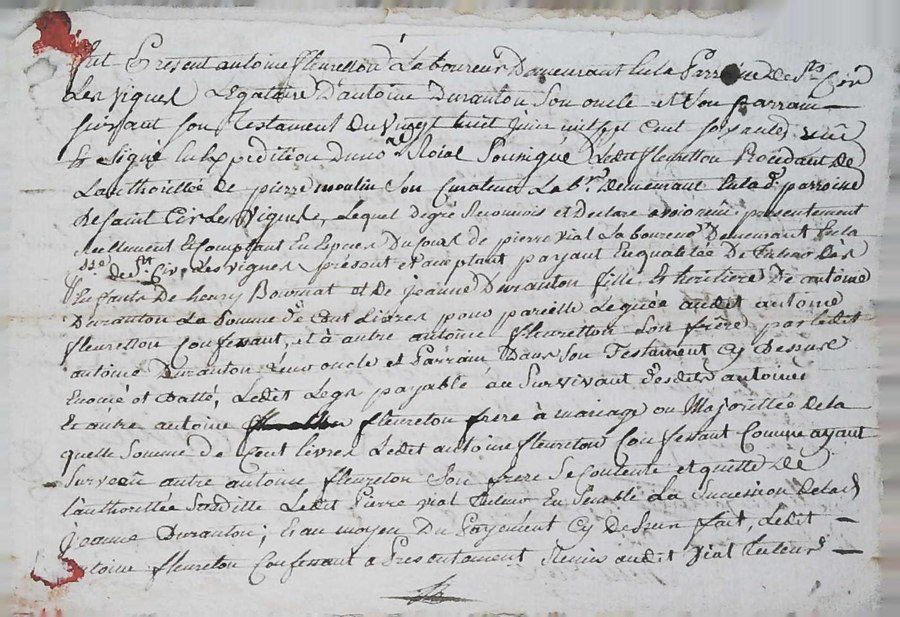 fut Présent antoine fleuretton Laboureur Demeurant En la Parroisse de St Cir
Les vignes Légataire D'antoine Duranton Son oncle et Son parrain
suivant son Testament Du vingt huit juin mil sept cent soixante
Et Signé En Expedition Roial Ledit fleuretton Procédant de
Lauthorittée de pierre moulin Son Curateur Lab.r Demeurant En la d. parroisse
De saint Cir Les vignes, Lequel de gré Reconnois et Declare avoir présentement
Réellement Et Comptant En Espèces Du jour de pierre vial Laboureur Demeurant En la
de St Cir Les vignes présent et acceptant payant En qualitée De Tuteur Des
Enfants De henry Bournat et De jeanne Duranton fille Et heritiere De antoine
Duranton La Somme de Cent Livres pour pareille Leguée audit antoine
fleuretton Confessant, et à autre antoine fleuretton Son frère par Ledit
antoine Duranton Leur oncle et Parrain Dans Son Testament Cy Dessus
Enoncé et Datté, Ledit Legs payable au Survivant Desdits antoine
Et autre antoine fleureton frere à mariage ou Majorittée de la
quelle Somme de Cent livres Ledit antoine fleureton Confessant Comme ayant
Survécu autre antoine fleureton Son frere Se Contente et quitte De
L'authorittée Sus ditte Ledit Pierre vial Tuteur Ensemble La Sucession de lad.
jeanne Duranton; Et au moyen Du Payement Cy Dessus fait, Ledit
antoine fleureton Confessant a Présentement Remis audit Vial Tuteur